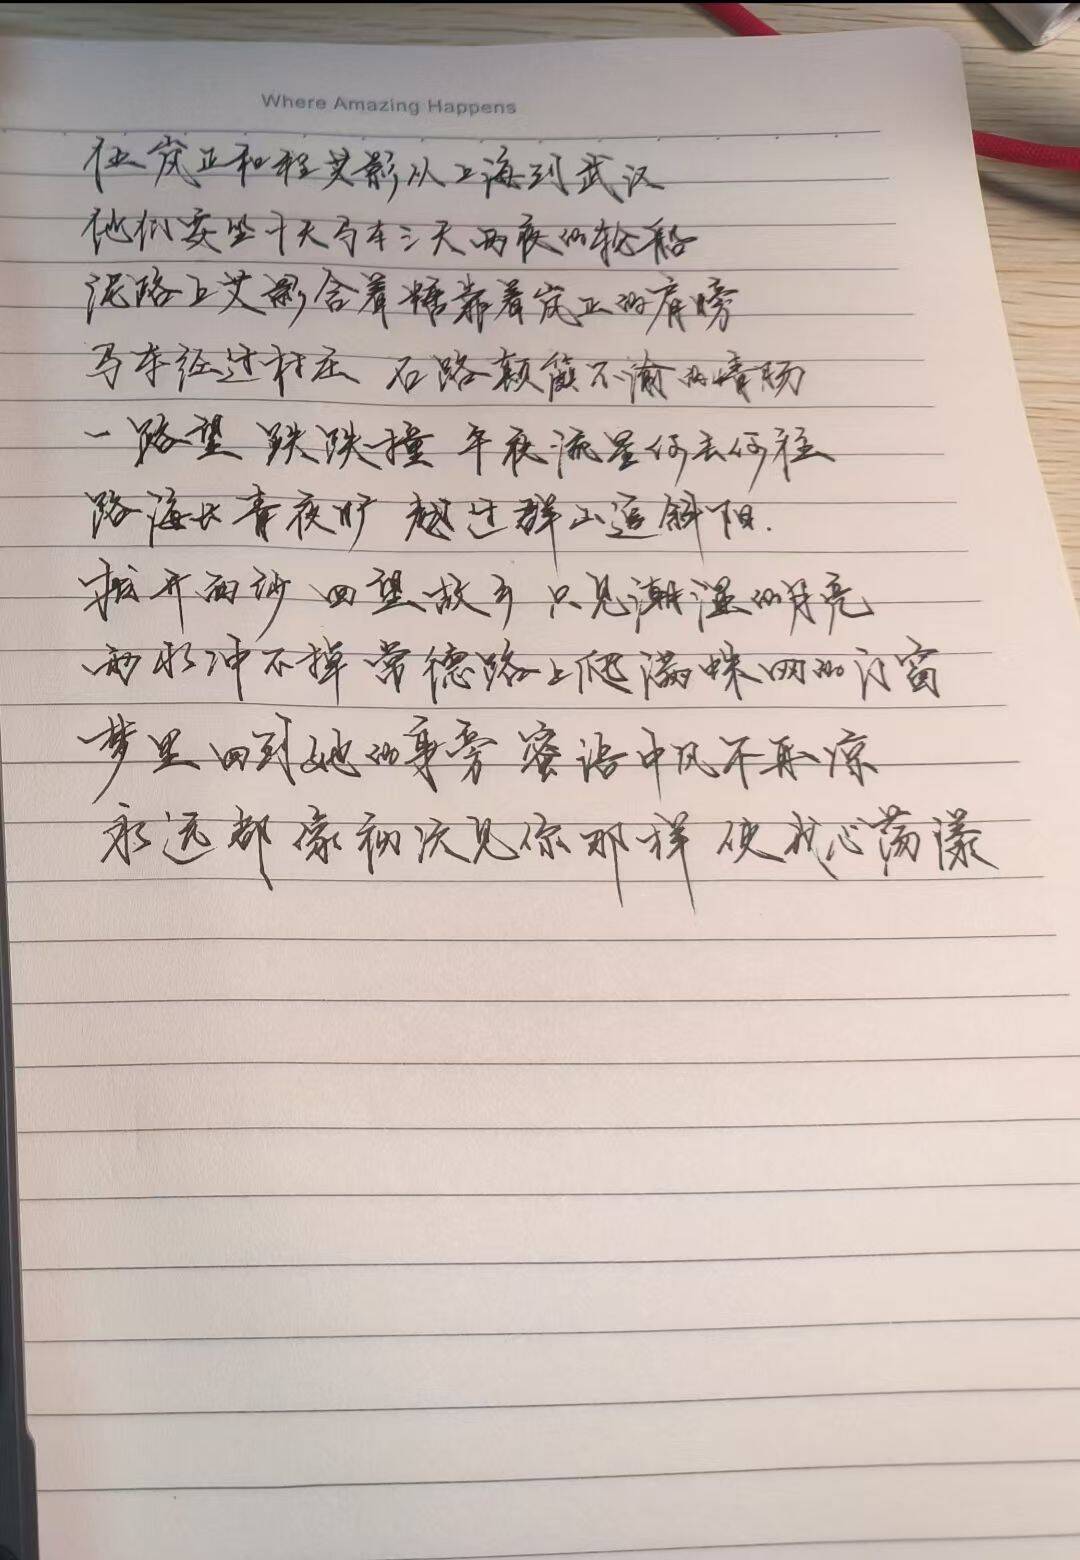 Where Amazing Happens
杜岚正和程艾影从上海到武汉
他们要坐十天马车三天两夜的轮船
泥路上艾影含着糖靠着岚正的肩膀
马车经过村庄 石路颠簸不渝的情肠
一路望 跌跌撞 午夜流星何去何往
路海长青夜旷 越过群山追斜阳.
拨开雨纱 回望故乡 只见潮湿的月亮
雨水冲不掉 常德路上爬满蛛网的门窗
梦里回到她的身旁 蜜语中风不再凉
永远都像初次见你那样 使我心荡漾